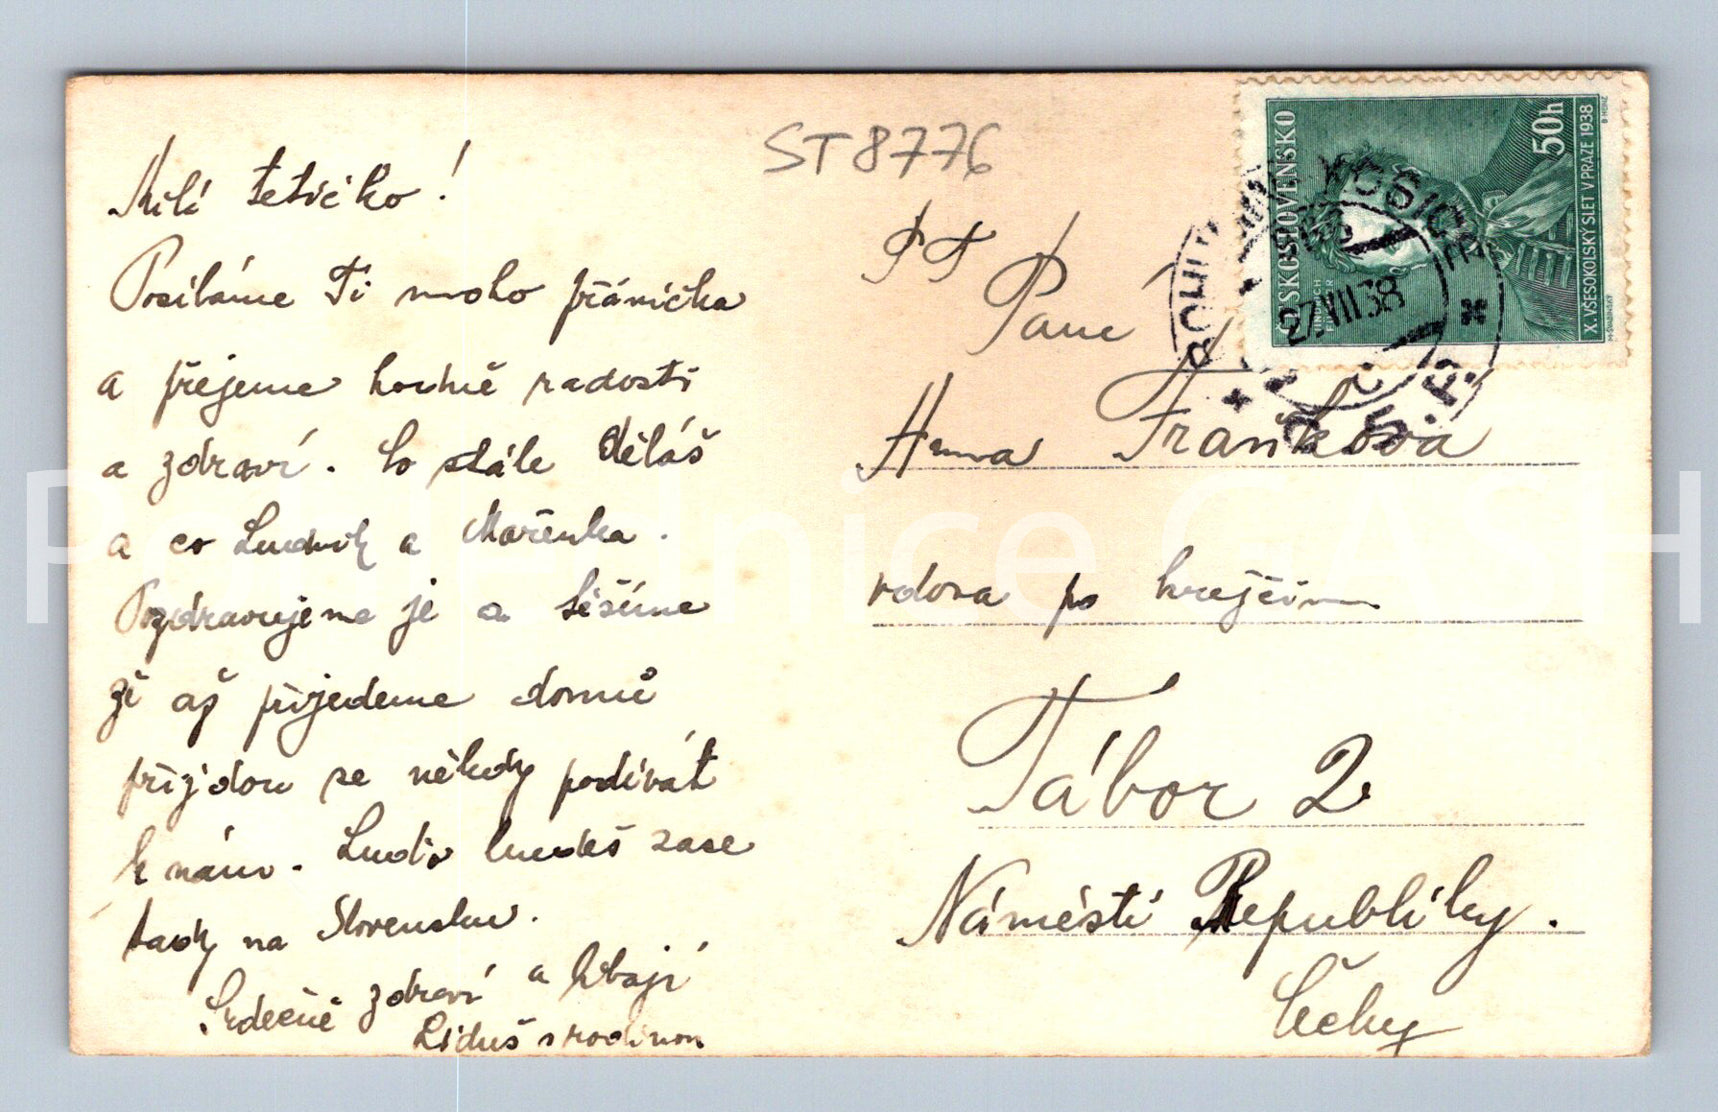 ST8776
Milá tetičko!
Posíláme Ti moho přáníčka
a přejeme hodně radosti
a zdraví. Co stále děláš
a co Ludvík a Mařenka.
Pozdravujeme je a těšíme
že až přijedeme domů
přijdou se někdy podívát
k nám. Luďa budeš zase
tady na Slovensku.
Srdečně zdraví a líbají
Liduš s rodinou
PT
Paní
Anna Franková
vdova po krejčím
Tábor 2
Náměstí Republiky.
Čechy
ČESKOSLOVENSKO
50h
X. VŠESOKOLSKÝ SLET V PRAZE 1938
JINDŘICH
KOŠIC
27.VIII.38
Pohlednice GASH